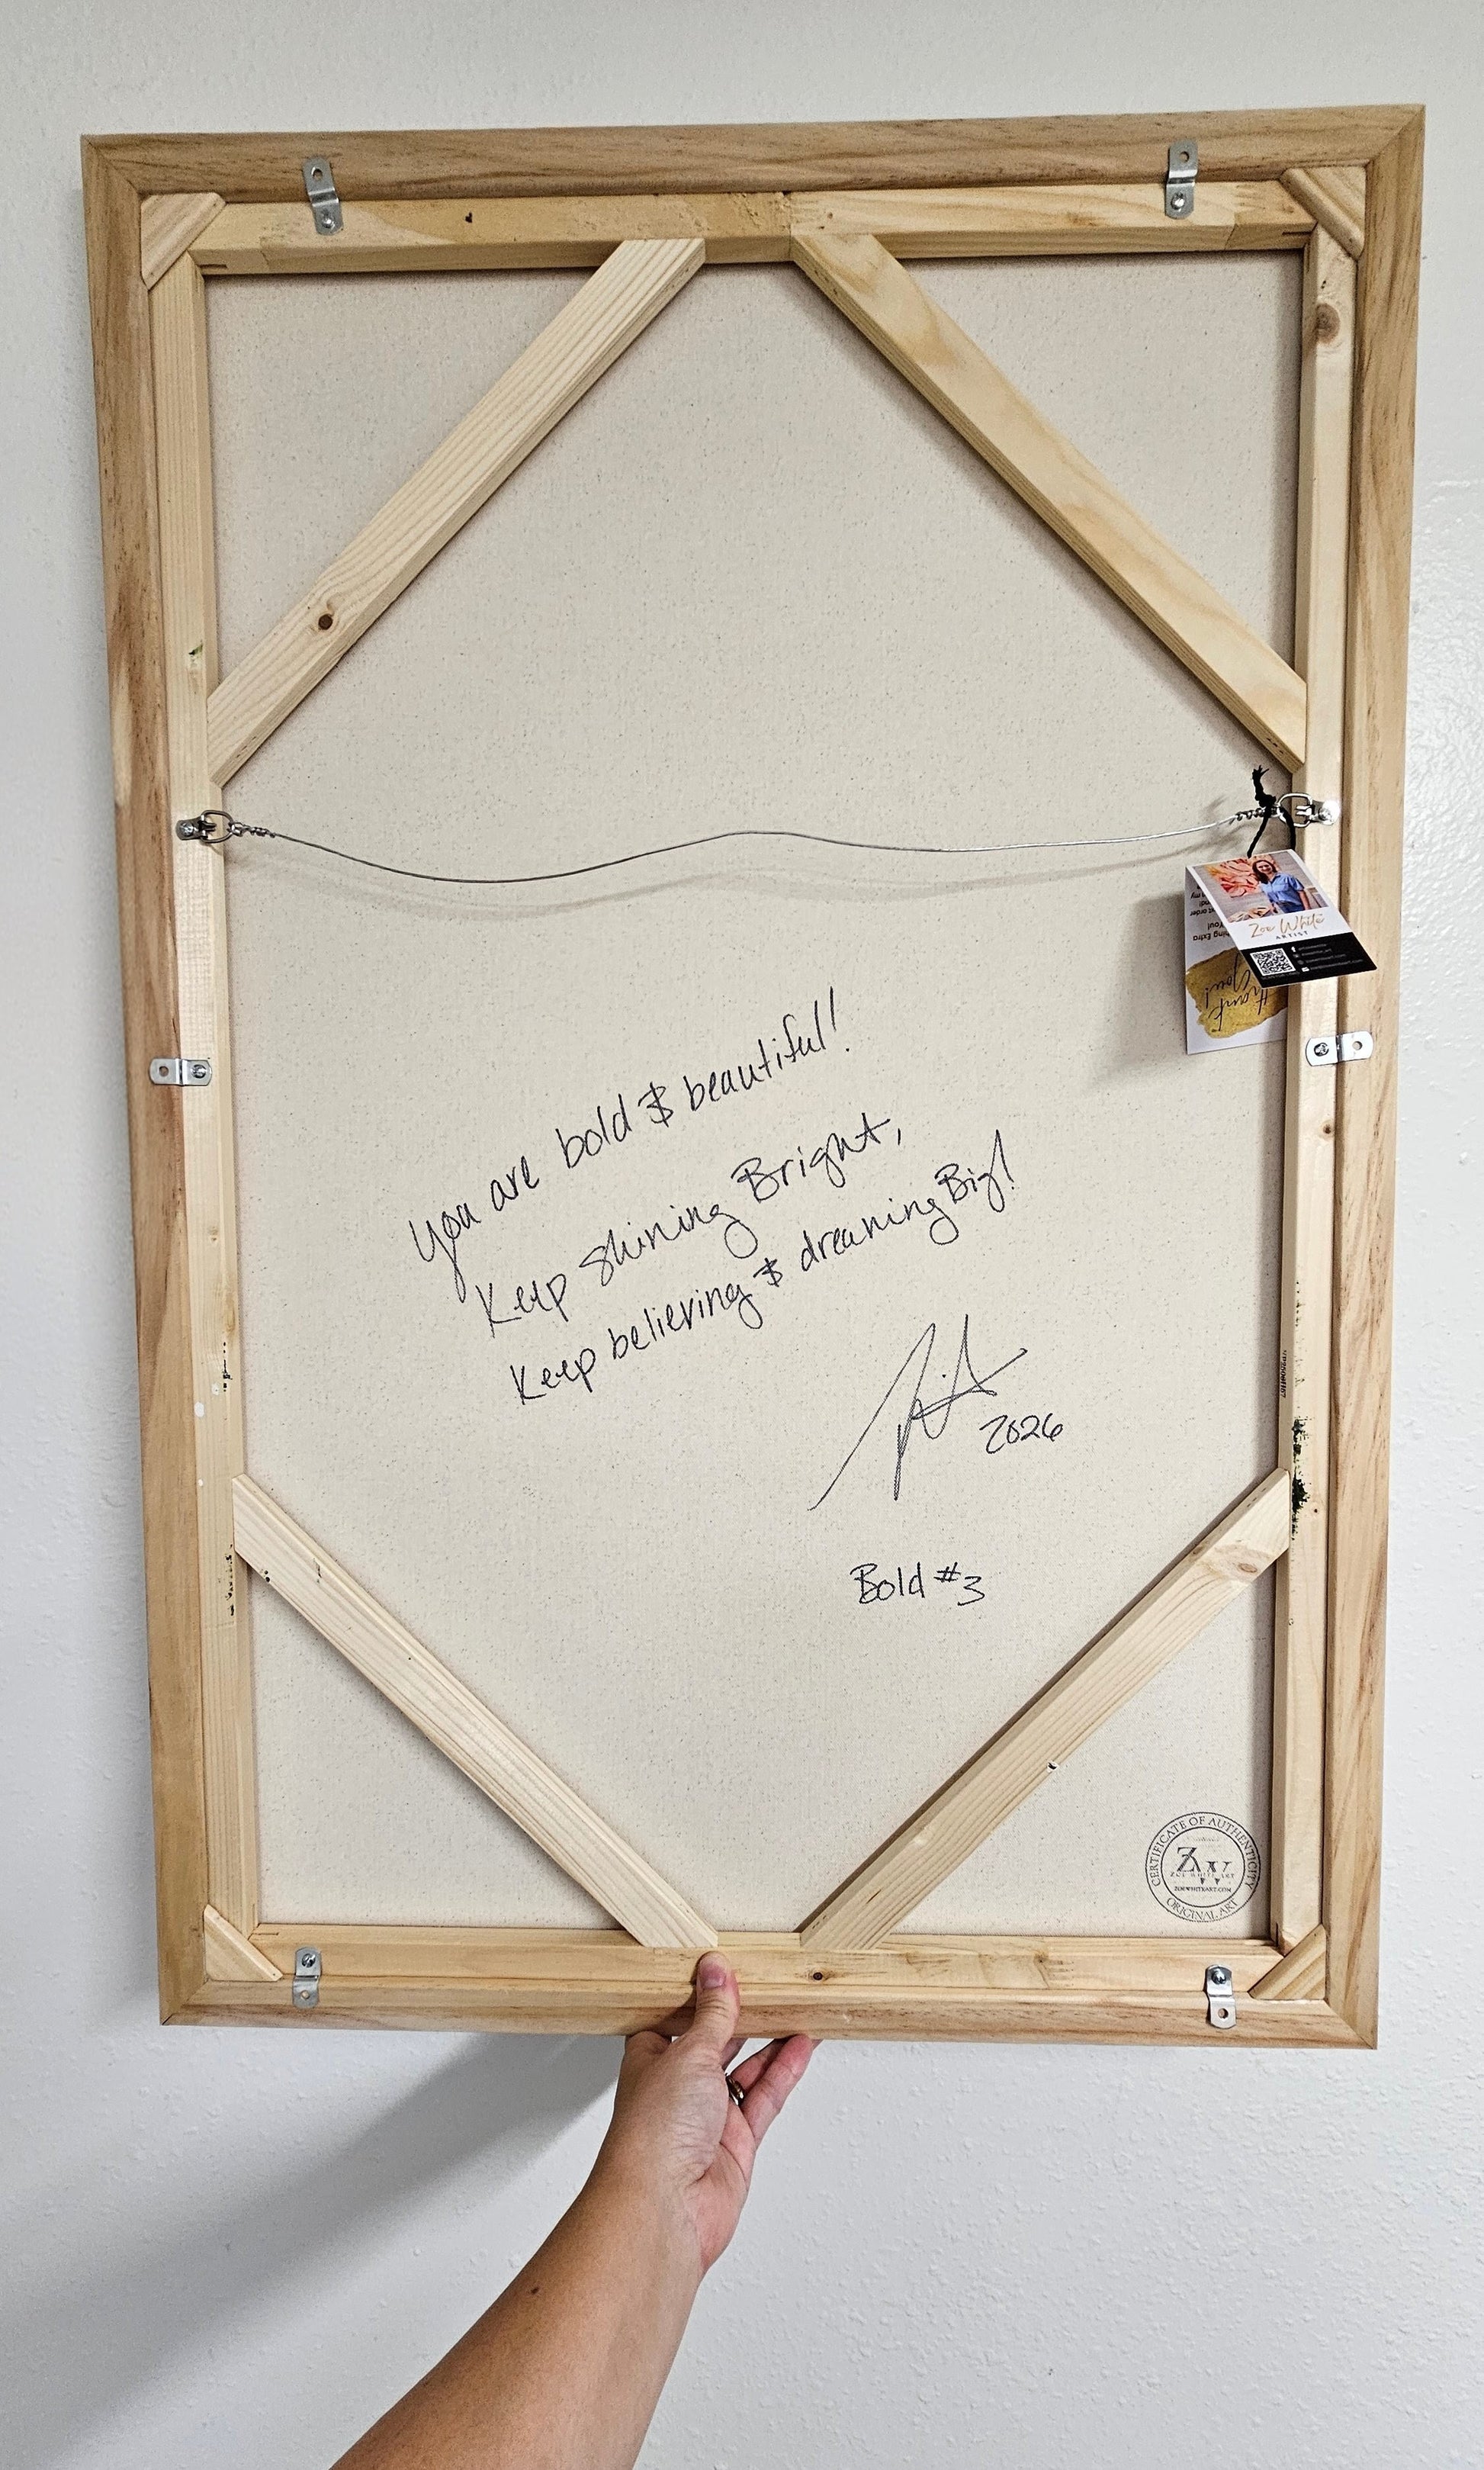 Zoe White
ARTIST
Thank
You!
You are bold & beautiful!
Keep shining Bright,
Keep believing & dreaming Big!
2026
Bold #3
CERTIFICATE OF AUTHENTICITY
ZW
ZOE WHITE ART
ZOEWHITEART.COM
ORIGINAL ART